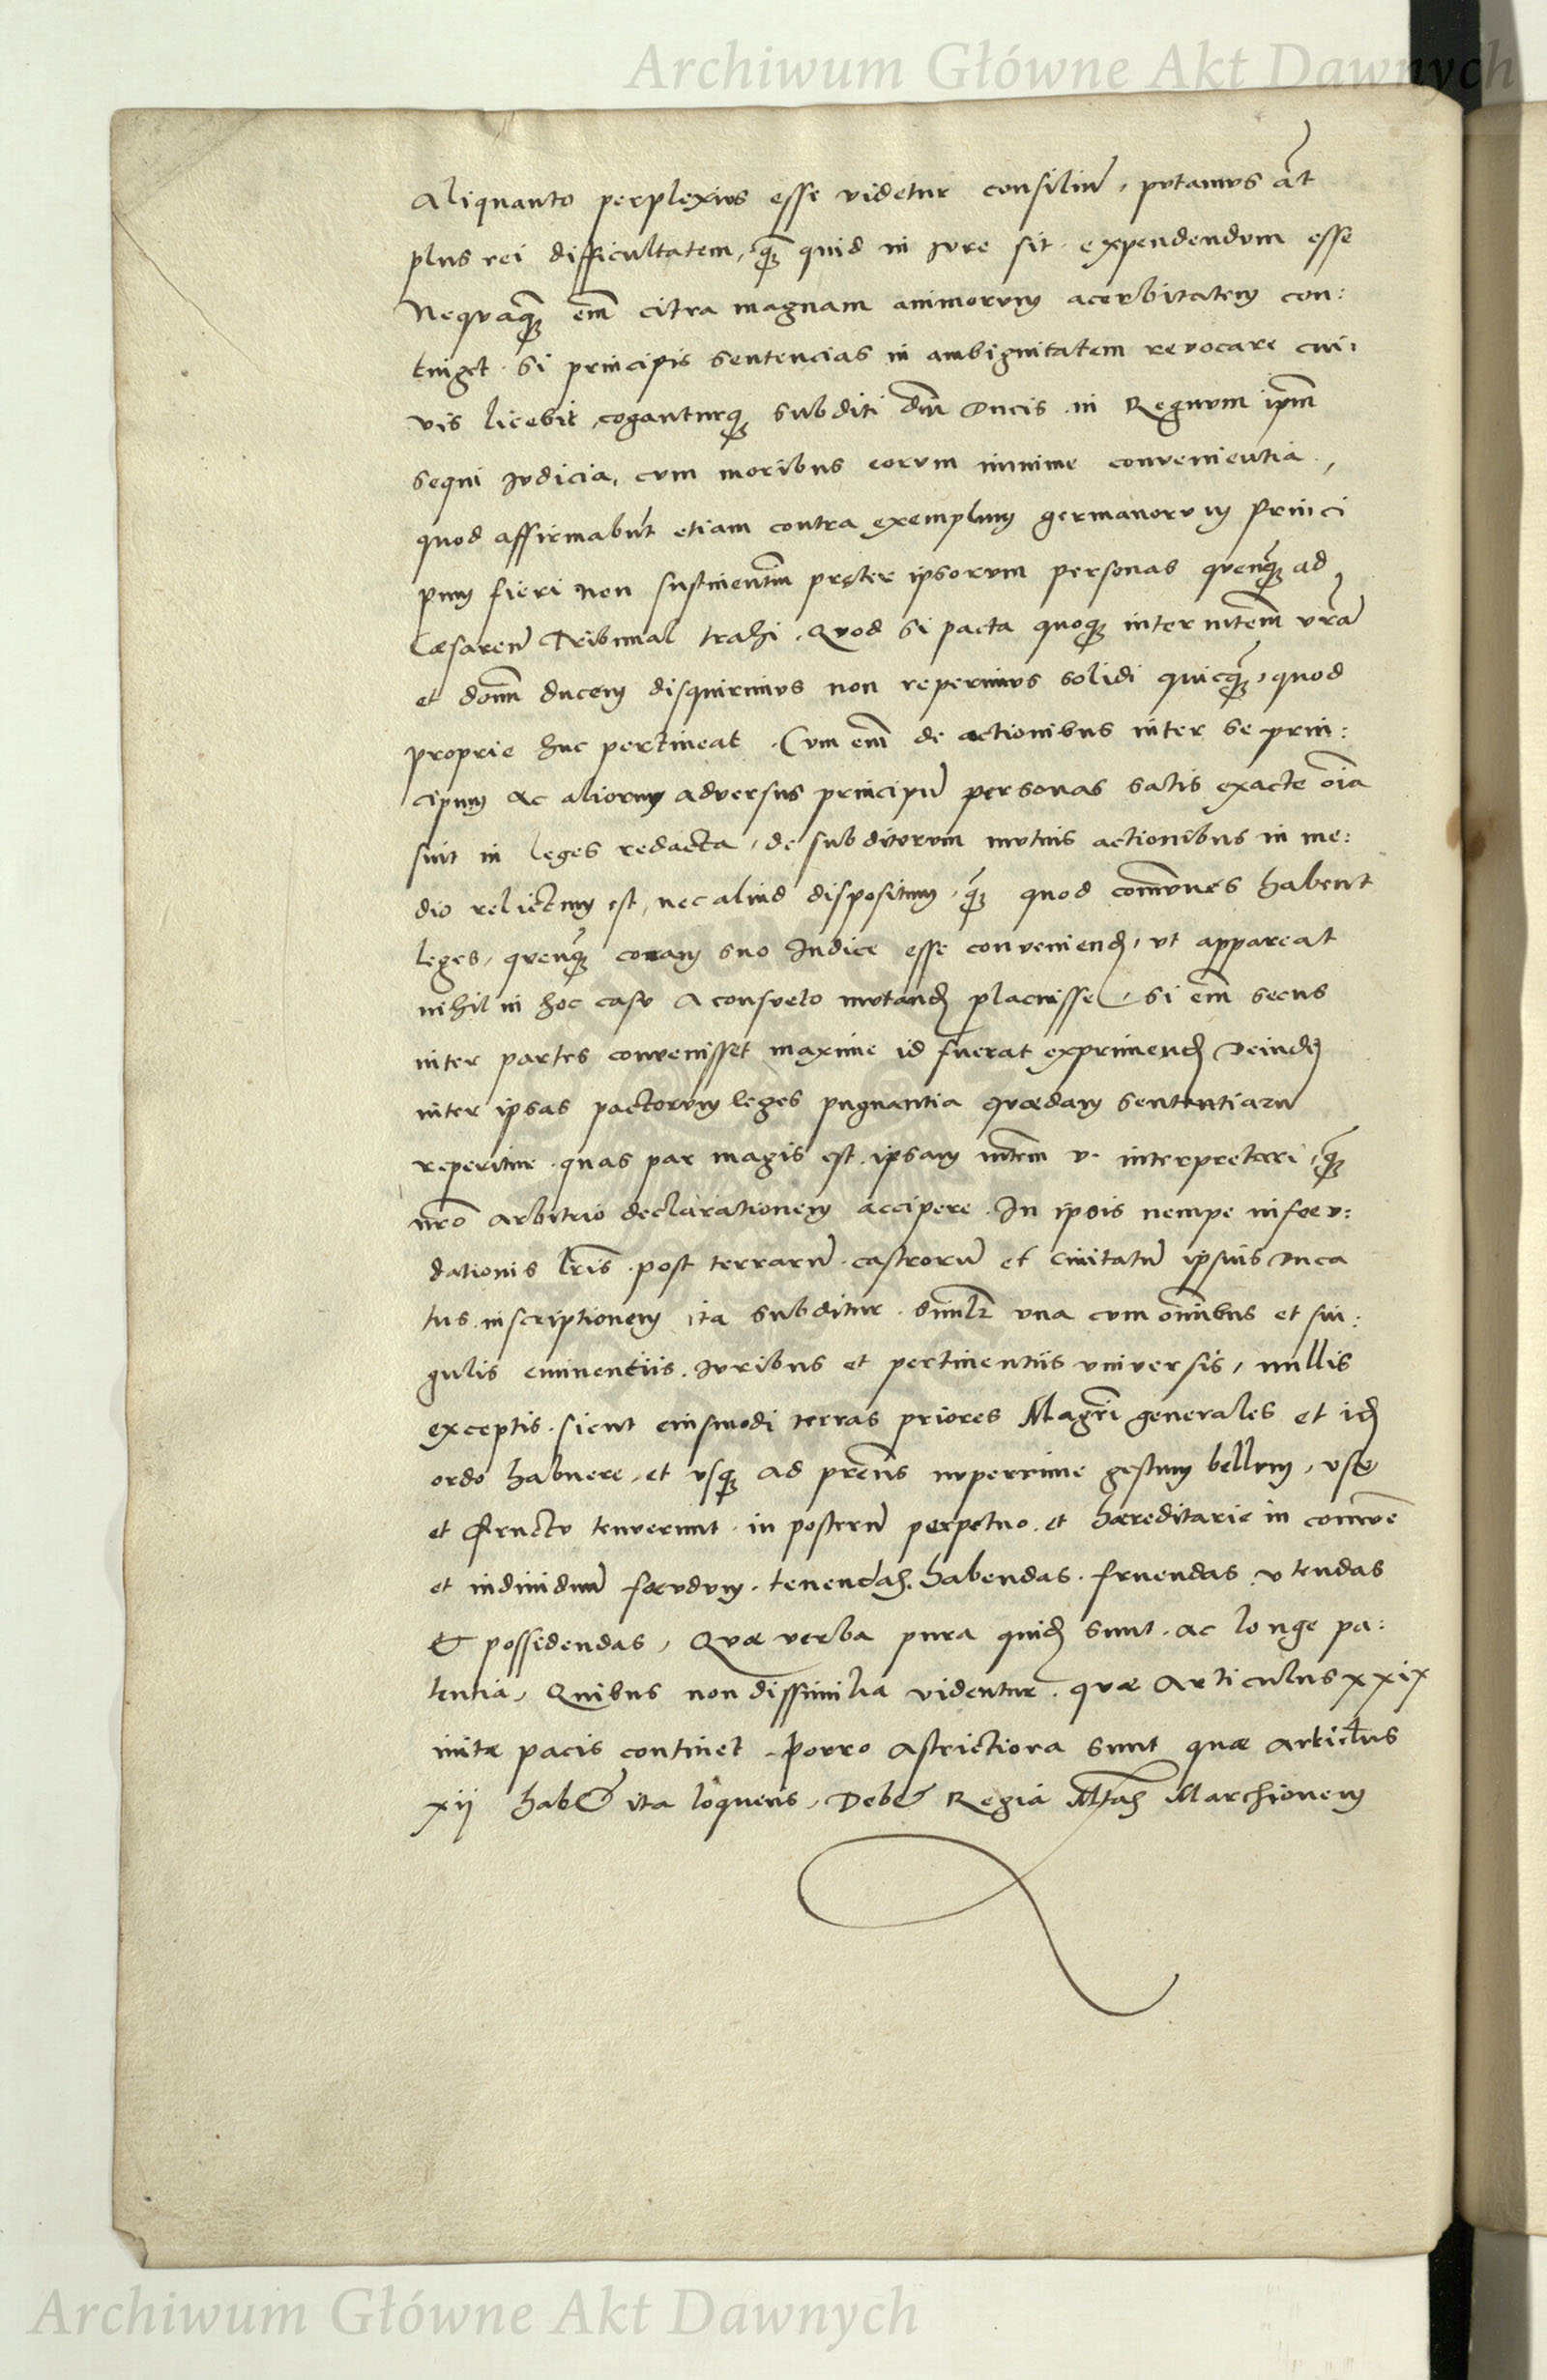 Archiwum Główne Akt Dawnych
Aliquanto perplexius esse videtur consiliũ, putamus āt
plus rei difficultatem, q̃ȝ quid in iure sit expendendum esse
Nequaq̃ȝ em̃ citra magnam animorum acerbitatem con:
tinget. Si principis sentencias in ambiguitatem revocare cui:
vis licebit, coganturqȝ subditi dñi Ducis in Regnum ip̃m
sequi iudicia, cum moribus eorum minime convenientia,
quod affirmabũt etiam contra exemplum germanorum Princi
pum fieri non sustinentiũ pręter ipsorum personas quenq̃ȝ ad
Cæsareũ Tribunal trahi. Quod si pacta quoqȝ inter mtem̃ vrãm
et dom̃ ducem disquirimus non reperimus solidi quicq̃ȝ, quod
proprie huc pertineat. Cum em̃ de actionibus inter se prin:
cipum ac aliorum adversus principũ personas satis exacte oĩa
sint in leges redacta, de subditorum mutuis actionibus in me:
dio relictum est, nec aliud dispositum, q̃ȝ quod com̃unes habent
leges, quenq̃ȝ coram suo Iudice esse conveniend, ut appareat
nihil in hoc casu a consueto mutand placuisse, Si em̃ secus
inter partes convenisset maxime id fuerat exprimend Deinde
inter ipsas pactorum leges pugnantia quædam sententiarũ
reperitur. quas par magis est ipsam mtem̃ v. interpretari, q̃ȝ
nrõ arbitrio declarationem accipere. In ipsis nempe infeu:
dationis lr̃is post terrarũ castrorũ et civitatũ ipsius Duca
tus inscriptionem ita subditur. Simlr̃ una cum om̃ibus et sin:
gulis eminentiis. iuribus et pertinentiis universis, nullis
exceptis. sicut eiusmodi terras priores Magr̃i generales et id
ordo habuere, et usqȝ ad prẽns nuperrime gestum bellum, usu
et fructu tenuerunt. in posterũ perpetuo et hæreditarie in com̃une
et individuũ foeudum. tenendas. habendas. fruendas. utendas
Et possidendas, Quæ verba pura quid sunt ac longe pa:
tentia, Quibus non dissimilia videntur. quæ Articulus xxix
initæ pacis continet. Porro astrictiora sunt quæ articl̃us
xij habet ita loquens, Debet Regia Mtas Marchionem
Archiwum Główne Akt Dawnych